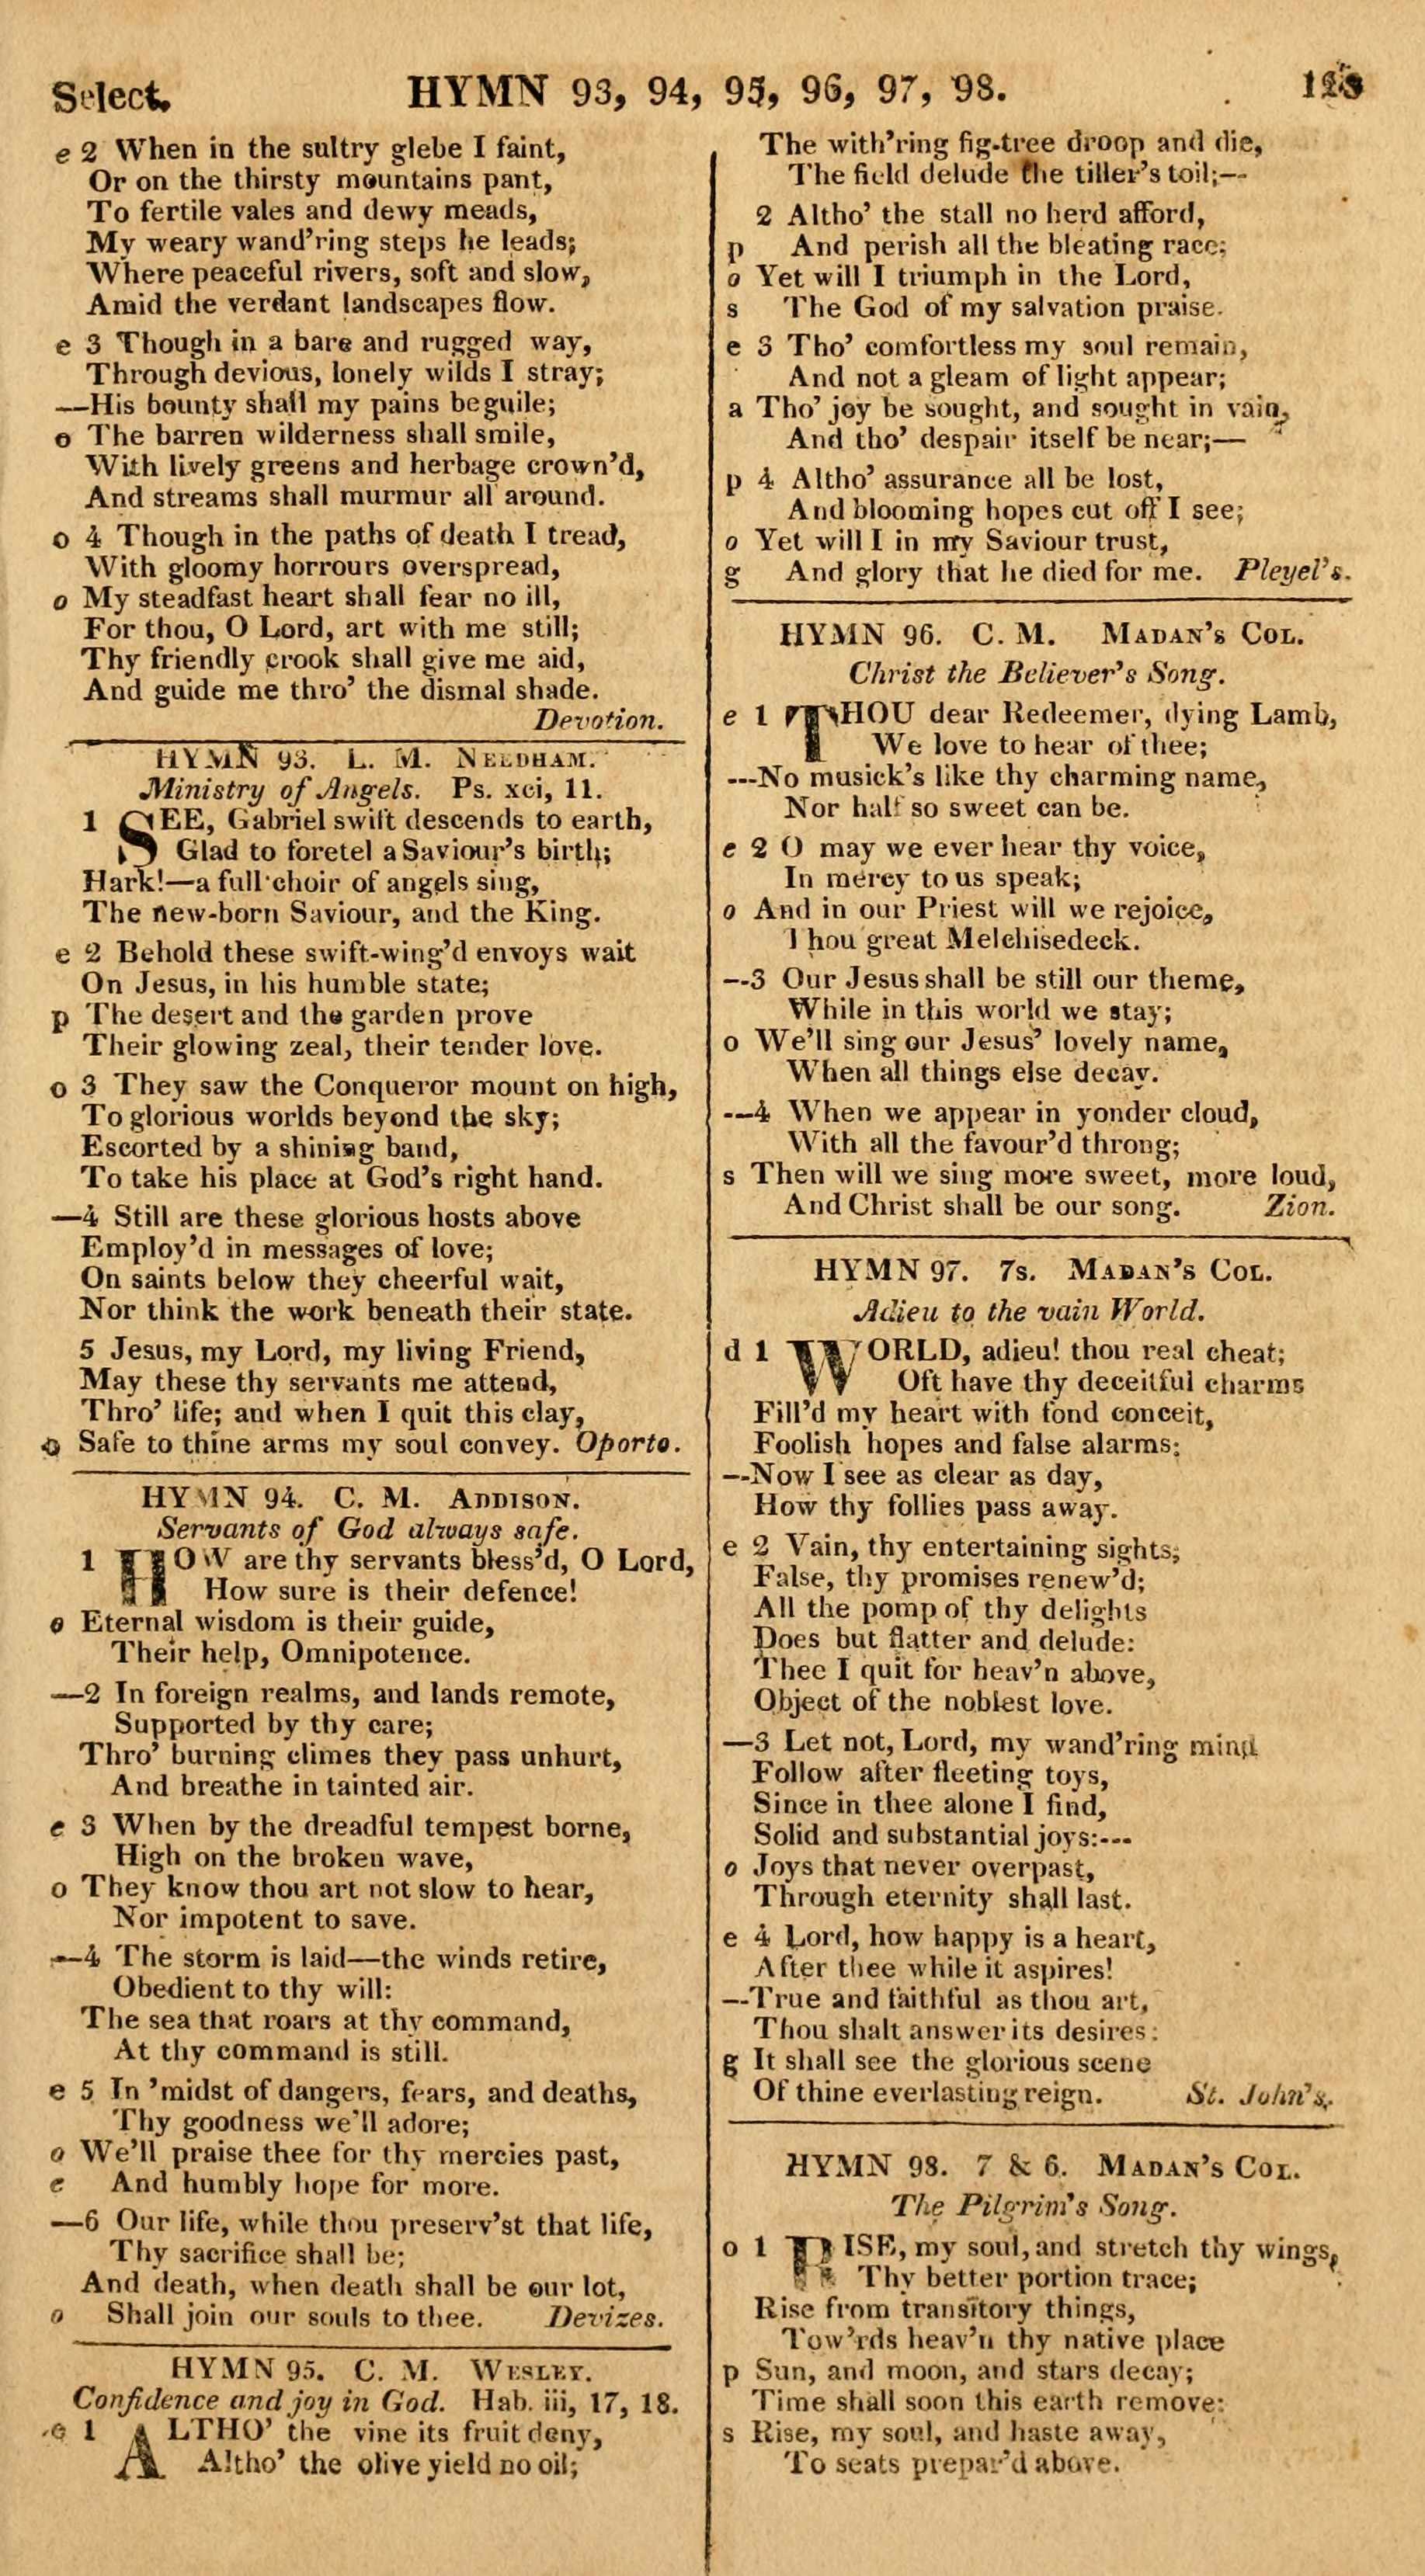 Select. HYMN 93, 94, 95, 96, 97, 98.
e 2 When in the sultry glebe I faint,
Or on the thirsty mountains pant,
To fertile vales and dewy meads,
My weary wand'ring steps he leads;
Where peaceful rivers, soft and slow,
Amid the verdant landscapes flow.
e 3 Though in a bare and rugged way,
Through devious, lonely wilds I stray;
—His bounty shall my pains beguile;
o The barren wilderness shall smile,
With lively greens and herbage crown'd,
And streams shall murmur all around.
o 4 Though in the paths of death I tread,
With gloomy horrours overspread,
o My steadfast heart shall fear no ill,
For thou, O Lord, art with me still;
Thy friendly crook shall give me aid,
And guide me thro' the dismal shade.
Devotion.
HYMN 93. L. M. NEEDHAM.
Ministry of Angels. Ps. xci, 11.
1 SEE, Gabriel swift descends to earth,
Glad to foretel a Saviour's birth;
Hark!—a full choir of angels sing,
The new-born Saviour, and the King.
e 2 Behold these swift-wing'd envoys wait
On Jesus, in his humble state;
p The desert and the garden prove
Their glowing zeal, their tender love.
o 3 They saw the Conqueror mount on high,
To glorious worlds beyond the sky;
Escorted by a shining band,
To take his place at God's right hand.
—4 Still are these glorious hosts above
Employ'd in messages of love;
On saints below they cheerful wait,
Nor think the work beneath their state.
5 Jesus, my Lord, my living Friend,
May these thy servants me attend,
Thro' life; and when I quit this clay,
o Safe to thine arms my soul convey. Oporto.
HYMN 94. C. M. ADDISON.
Servants of God always safe.
1 HOW are thy servants bless'd, O Lord,
How sure is their defence!
o Eternal wisdom is their guide,
Their help, Omnipotence.
—2 In foreign realms, and lands remote,
Supported by thy care;
Thro' burning climes they pass unhurt,
And breathe in tainted air.
e 3 When by the dreadful tempest borne,
High on the broken wave,
o They know thou art not slow to hear,
Nor impotent to save.
—4 The storm is laid—the winds retire,
Obedient to thy will:
The sea that roars at thy command,
At thy command is still.
e 5 In 'midst of dangers, fears, and deaths,
Thy goodness we'll adore;
o We'll praise thee for thy mercies past,
e And humbly hope for more.
—6 Our life, while thou preserv'st that life,
Thy sacrifice shall be;
And death, when death shall be our lot,
o Shall join our souls to thee. Devizes.
HYMN 95. C. M. WESLEY.
Confidence and joy in God. Hab. iii, 17, 18.
e 1 ALTHO' the vine its fruit deny,
Altho' the olive yield no oil;
The with'ring fig-tree droop and die,
The field delude the tiller's toil;—
2 Altho' the stall no herd afford,
p And perish all the bleating race;
o Yet will I triumph in the Lord,
s The God of my salvation praise.
e 3 Tho' comfortless my soul remain,
And not a gleam of light appear;
a Tho' joy be sought, and sought in vain,
And tho' despair itself be near;—
p 4 Altho' assurance all be lost,
And blooming hopes cut off I see;
o Yet will I in my Saviour trust,
g And glory that he died for me. Pleyel's.
HYMN 96. C. M. MADAN'S COL.
Christ the Believer's Song.
e 1 THOU dear Redeemer, dying Lamb,
We love to hear of thee;
—No musick's like thy charming name,
Nor half so sweet can be.
e 2 O may we ever hear thy voice,
In mercy to us speak;
o And in our Priest will we rejoice,
Thou great Melchisedeck.
—3 Our Jesus shall be still our theme,
While in this world we stay;
o We'll sing our Jesus' lovely name,
When all things else decay.
—4 When we appear in yonder cloud,
With all the favour'd throng;
s Then will we sing more sweet, more loud,
And Christ shall be our song. Zion.
HYMN 97. 7s. MADAN'S COL.
Adieu to the vain World.
d 1 WORLD, adieu! thou real cheat;
Oft have thy deceitful charms
Fill'd my heart with fond conceit,
Foolish hopes and false alarms:
—Now I see as clear as day,
How thy follies pass away.
e 2 Vain, thy entertaining sights;
False, thy promises renew'd;
All the pomp of thy delights
Does but flatter and delude:
Thee I quit for heav'n above,
Object of the noblest love.
—3 Let not, Lord, my wand'ring mind
Follow after fleeting toys,
Since in thee alone I find,
Solid and substantial joys:—
o Joys that never overpast,
Through eternity shall last.
e 4 Lord, how happy is a heart,
After thee while it aspires!
—True and faithful as thou art,
Thou shalt answer its desires:
g It shall see the glorious scene
Of thine everlasting reign. St. John's.
HYMN 98. 7 & 6. MADAN'S COL.
The Pilgrim's Song.
o 1 RISE, my soul, and stretch thy wings,
Thy better portion trace;
Rise from transitory things,
Tow'rds heav'n thy native place
p Sun, and moon, and stars decay;
Time shall soon this earth remove:
s Rise, my soul, and haste away,
To seats prepar'd above.